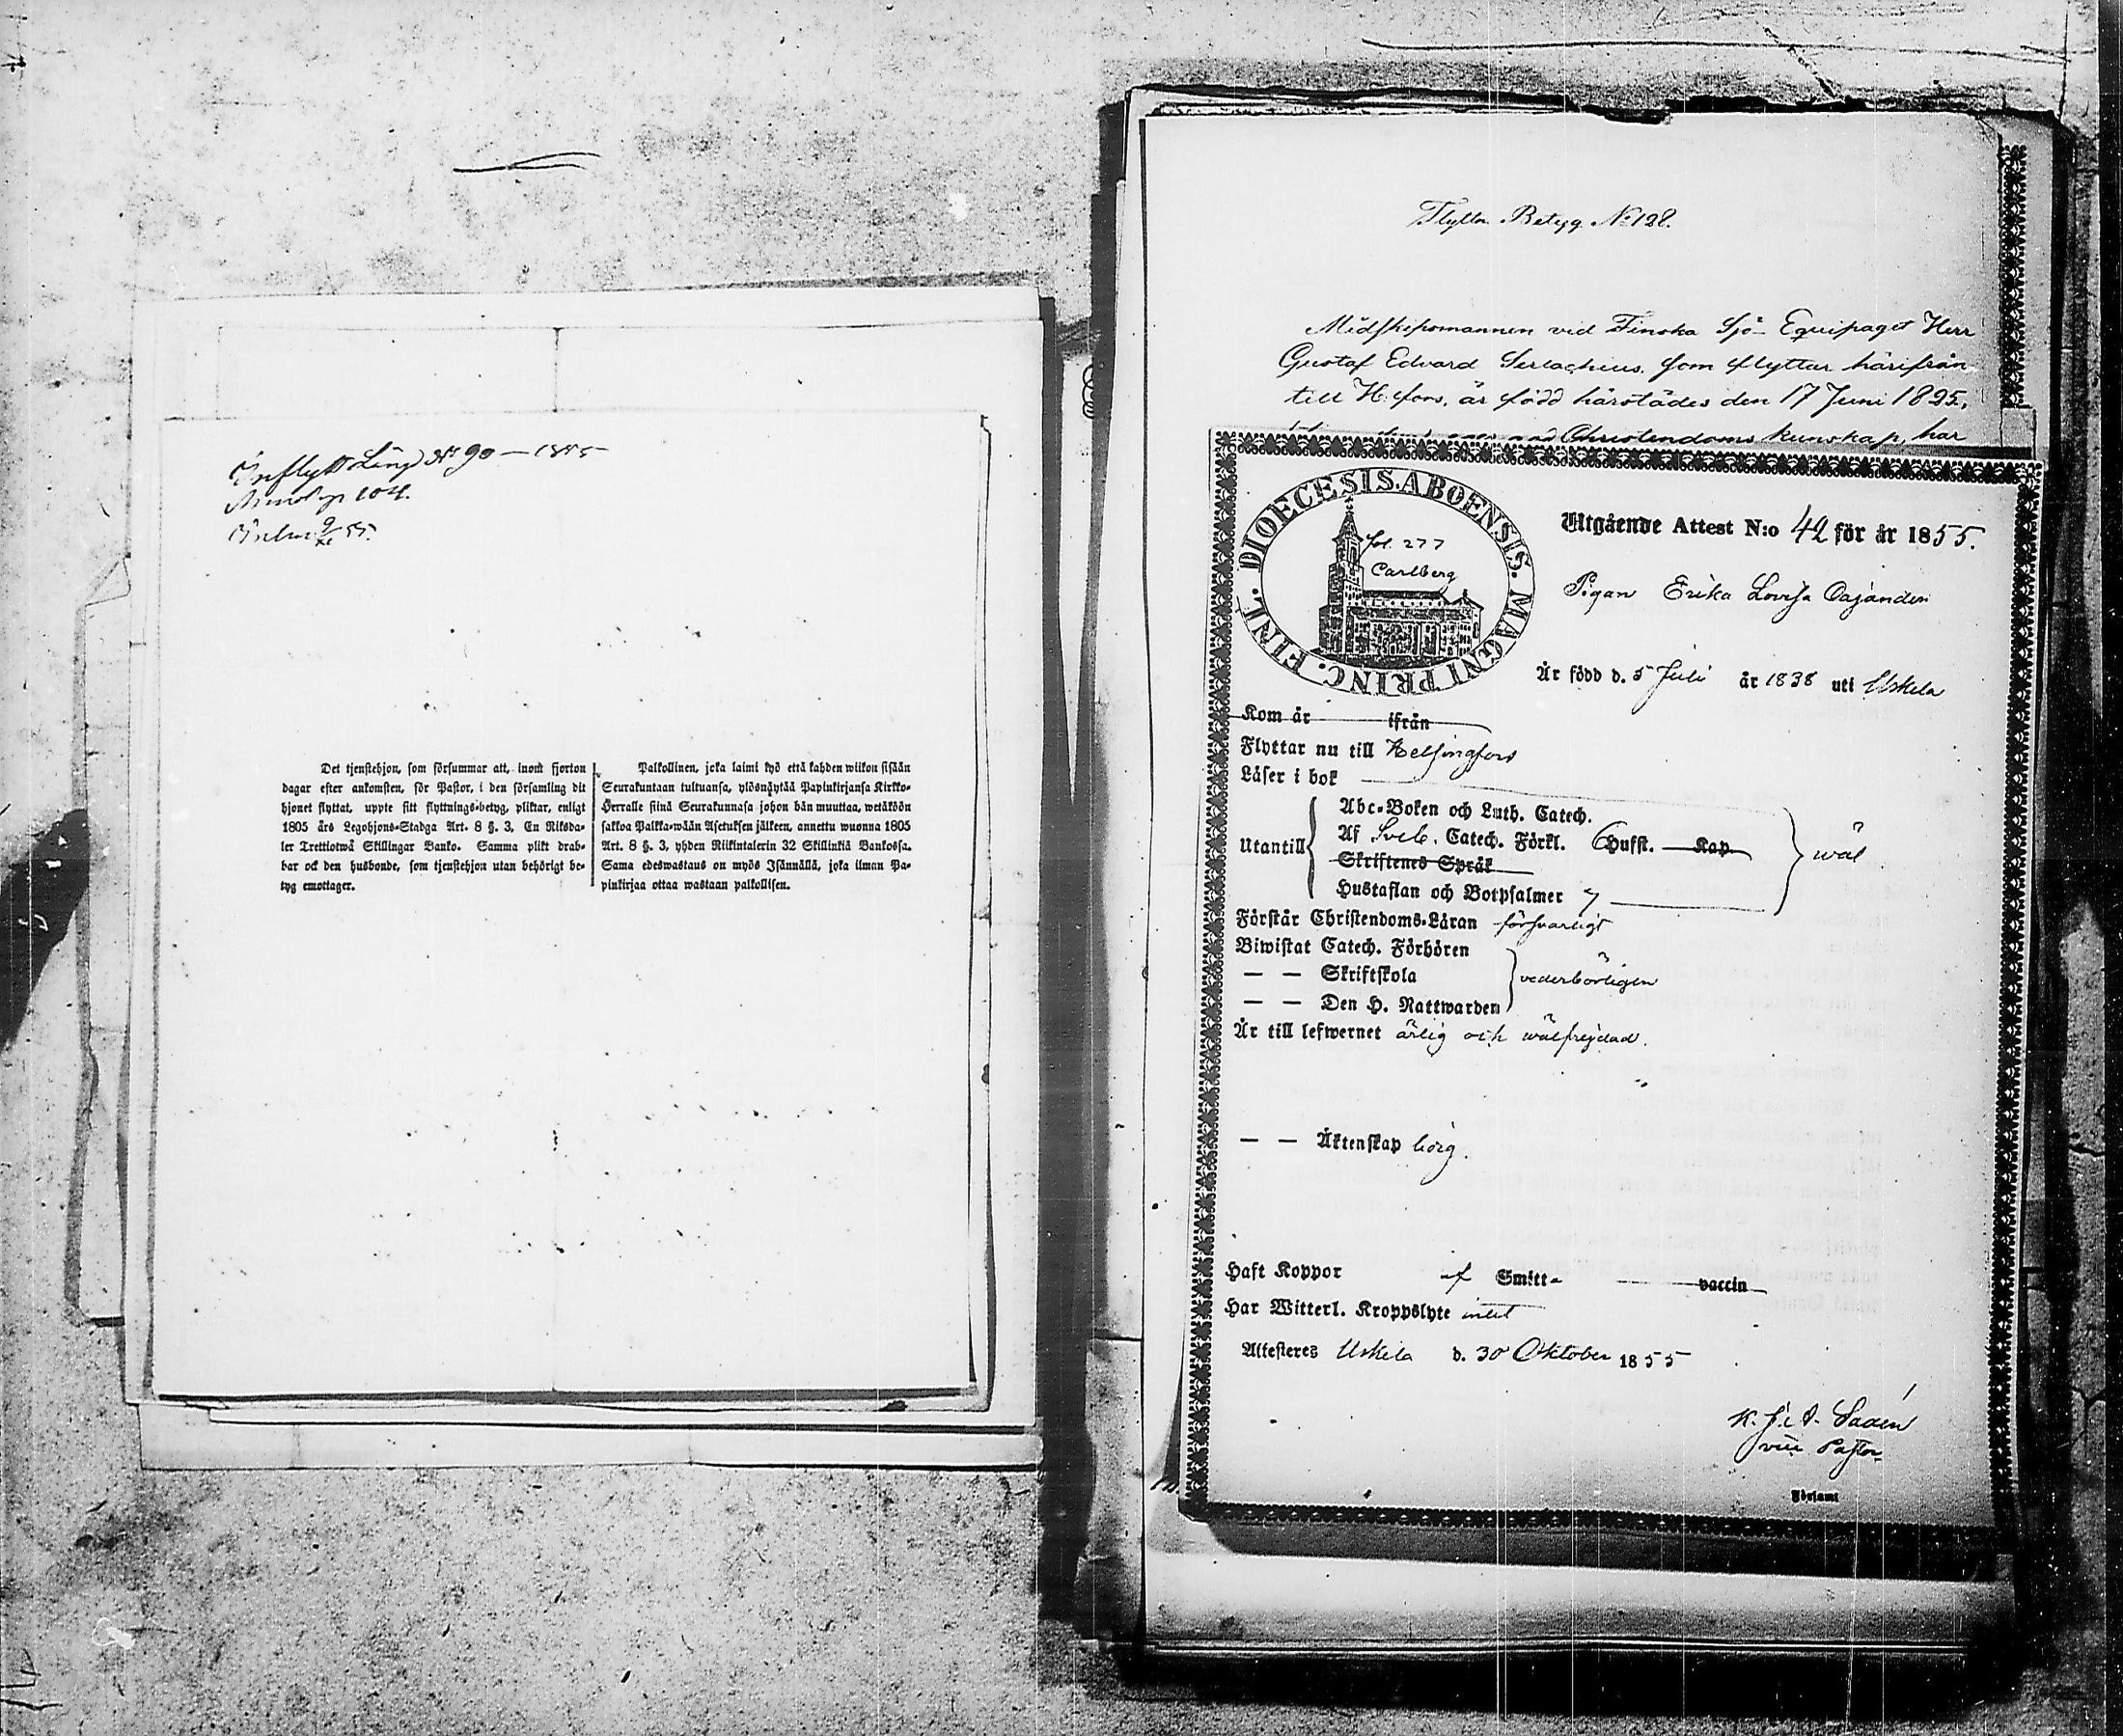 Inflytt Längd No 90 — 1855
104.
9/XI 55.
Det tjenstehjon, som försummar att, inom fjorton
dagar efter ankomsten, för Pastor, i den församling dit
hjonet flyttat, uppte sitt flyttnings-betyg, pliktar, enligt
1805 års Legohjons-Stadga Art. 8 §. 3, En Riksda-
ler Trettiotwå Skillingar Banko. Samma plikt drab-
bar ock den husbonde, som tjenstehjon utan behörigt be-
tyg emottager.
Palkollinen, joka laimi lyö että kahden wiikon sisään
Seurakuntaan tultuansa, ylösnäytää Papinkirjansa Kirkko-
Herralle siinä Seurakunnasa johon hän muuttaa, wetäköön
sakkoa Palkka-wään Asetuksen jälkeen, annettu wuonna 1805
Art. 8 §. 3, yhden Riikintalerin 32 Skillinkiä Bankossa.
Sama edeswastaus on myös Isännällä, joka ilman Pa-
pinkirjaa ottaa wastaan palkollisen.
Flytta Betyg No 128.
Midskipsmannen vid Finska Sjö-Equipaget Herr
Gustaf Edvard Serlachius, som flyttar härifrån
till H:fors, är född härstädes den 17 Juni 1825,
Christendoms kunskap, har
DIOECESIS. ABOENSIS. MAGNI PRINC. FINL.
fol. 277
Carlberg
Utgående Attest N:o 42 för år 1855.
Pigan Erika Lovisa Cajander
Är född d. 5 Juli år 1838 uti Uskela
Kom år ifrån
Flyttar nu till Helsingfors
Läser i bok
Utantill
Abc-Boken och Luth. Catech.
Af Sveb. Catech. Förkl. Hufst. Kap.
Skriftenes Språk
Hustaflan och Botpsalmer 7
wäl
Förstår Christendoms-Läran försvarligt
Biwistat Catech. Förhören
— — Skriftskola
— — Den H. Nattwarden
vederbörligen
Är till lefwernet ärlig och wälfrejdad.
— — Äktenskap ledig.
Haft Koppor af Smitt- vaccin
Har Witterl. Kroppslyte intet
Attesteres Uskela d. 30 Oktober 1855
vice Pastor